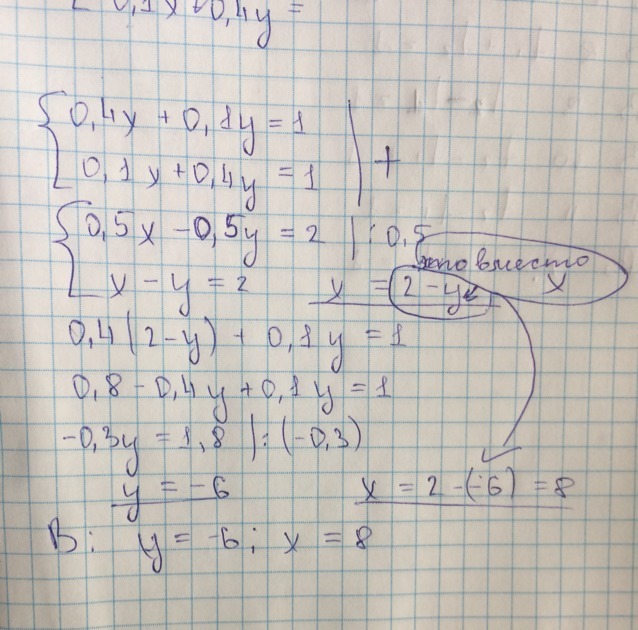 0,1x+0,4y =
0,4x + 0,1y = 1
0,1x + 0,4y = 1 | +
0,5x - 0,5y = 2 | : 0,5
это вместо x
x - y = 2 x = 2 - y
0,4(2-y) + 0,1y = 1
0,8 - 0,4y + 0,1y = 1
-0,3y = 1,8 | : (-0,3)
y = -6 x = 2 - (-6) = 8
В: y = -6; x = 8